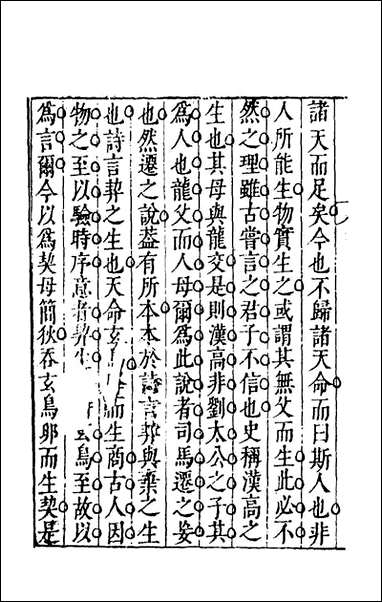 諸天而足矣今也不歸諸天命而曰斯人也非
人所能生物實生之或謂其無父而生此必不
然之理雖古嘗言之君子不信也史稱漢高之
生也其母與龍交是則漢高非劉太公之子其
爲人也龍父而人母爾爲此說者司馬遷之妄
也然遷之說葢有所本本於詩言契與棄之生
也詩言契之生也天命玄而生商古人因
物之至以驗時序意者契生鳥至故以
爲言爾今以爲契母簡狄吞玄鳥卵而生契是